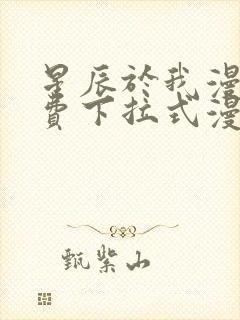 星辰於我漫
費下拉式漫
甄紫山